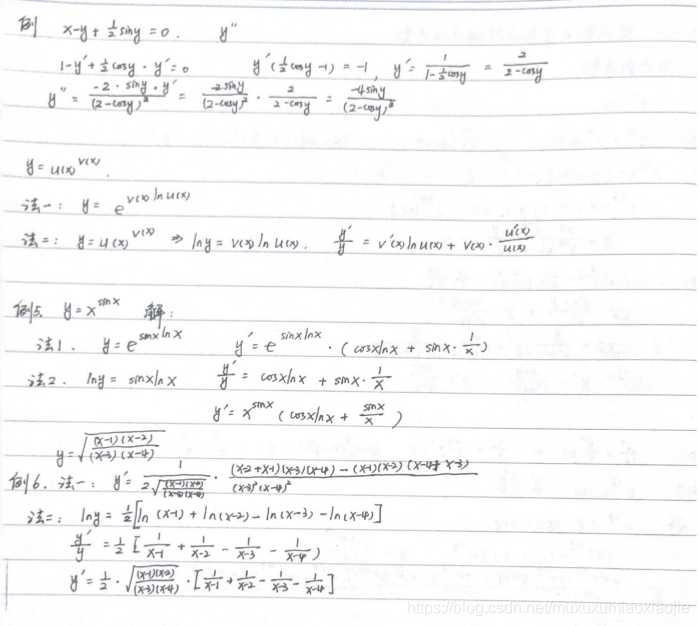 例 x-y+½siny=0. y''
1-y'+½cosy·y'=0 y'(½cosy-1)=-1, y'=1/(1-½cosy)=2/(2-cosy)
y''=(-2·siny·y')/(2-cosy)²=(-2siny)/(2-cosy)²·2/(2-cosy)=(-4siny)/(2-cosy)³
y=u(x)^v(x).
法一: y=e^(v(x)lnu(x))
法二: y=u(x)^v(x) ⇒ lny=v(x)lnu(x). y'/y=v'(x)lnu(x)+v(x)·u'(x)/u(x)
例5. y=x^sinx 解:
法1. y=e^(sinxlnx) y'=e^(sinxlnx)·(cosxlnx+sinx·1/x)
法2. lny=sinxlnx y'/y=cosxlnx+sinx·1/x
y'=x^sinx(cosxlnx+sinx/x)
y=√((x-1)(x-2)/((x-3)(x-4)))
例6. 法一: y'=1/(2√((x-1)(x-2)/((x-3)(x-4))))·((x-2+x-1)(x-3)(x-4)-(x-1)(x-2)(x-4+x-3))/((x-3)²(x-4)²)
法二: lny=½[ln(x-1)+ln(x-2)-ln(x-3)-ln(x-4)]
y'/y=½[1/(x-1)+1/(x-2)-1/(x-3)-1/(x-4))
y'=½·√((x-1)(x-2)/((x-3)(x-4)))·[1/(x-1)+1/(x-2)-1/(x-3)-1/(x-4)]
https://blog.csdn.net/muxuxumiaoxiaojie